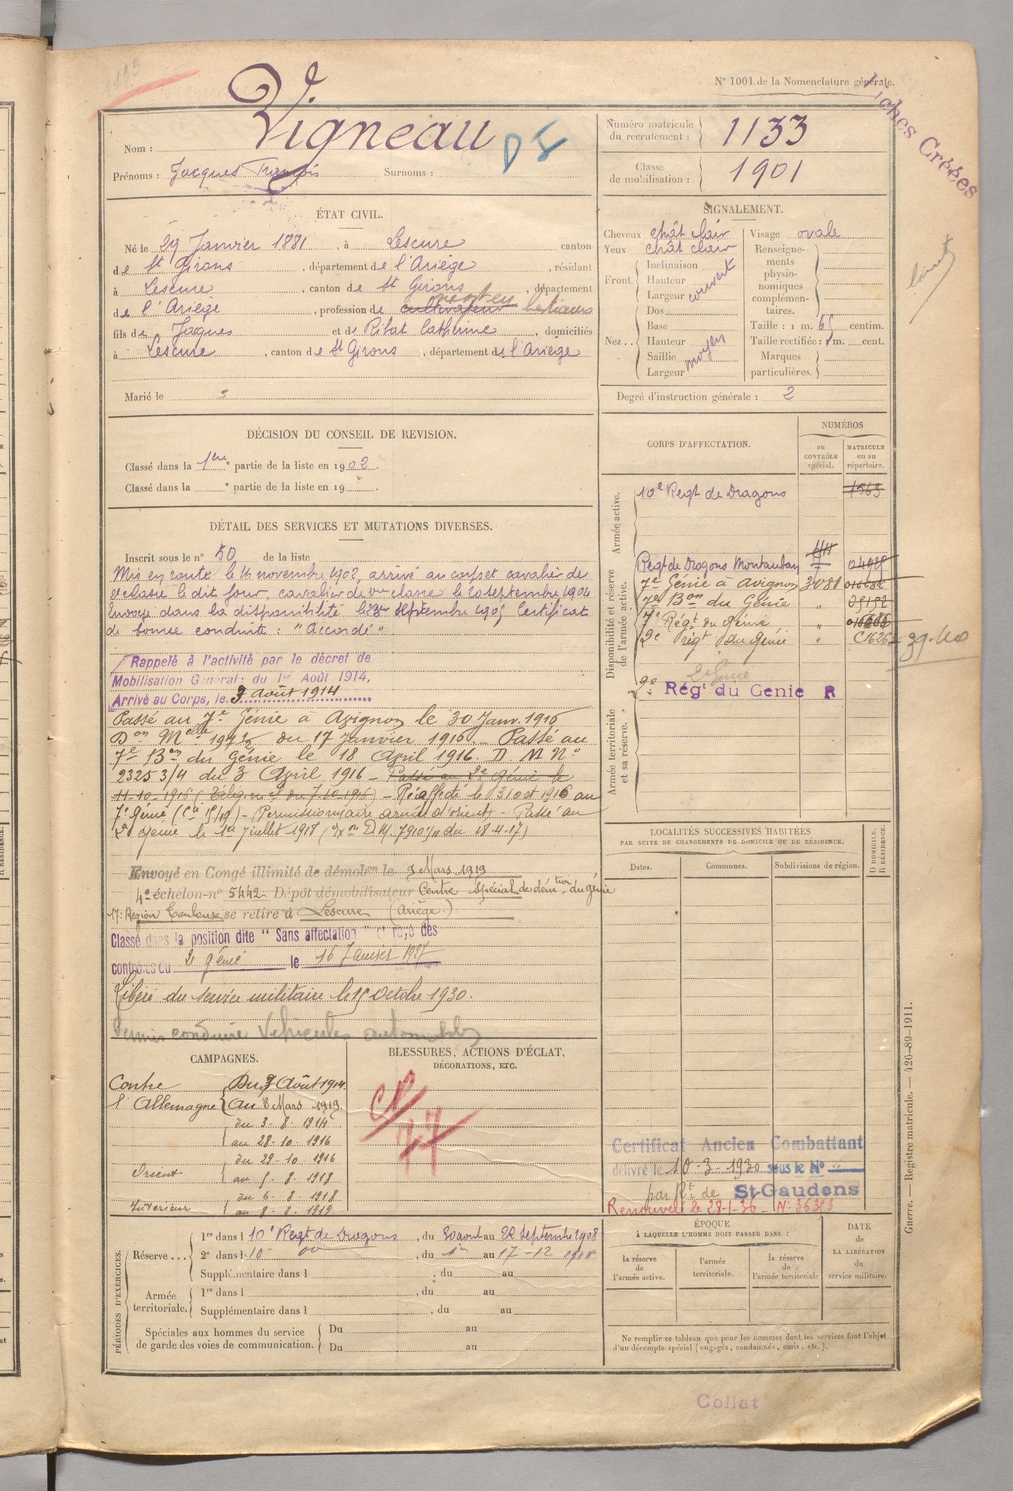 N° 1001 de la Nomenclature générale.
Fiches Créées
Nom : Vigneau
Prénoms : Jacques François Surnoms :
Numéro matricule du recrutement : 1133
Classe de mobilisation : 1901
ÉTAT CIVIL.
Né le 29 Janvier 1881, à Lescure canton
de St Girons, département de l'Ariège, résidant
à Lescure, canton de St Girons, département
de l'Ariège, profession de cultivateur bestiaux
fils de Jaques et de Ribat Catherine, domiciliés
à Lescure, canton de St Girons, département de l'Ariège
Marié le
SIGNALEMENT.
Cheveux chât clair Visage ovale
Yeux chât clair Renseignements physionomiques complémentaires.
Front. Inclinaison Hauteur Largeur couvert
Nez.. Dos Base Hauteur Saillie Largeur moyen
Taille : 1 m. 65 centim.
Taille rectifiée : 1 m. cent.
Marques particulières.
Degré d'instruction générale : 2
DÉCISION DU CONSEIL DE REVISION.
Classé dans la 1ère partie de la liste en 1902.
Classé dans la e partie de la liste en 19
DÉTAIL DES SERVICES ET MUTATIONS DIVERSES.
Inscrit sous le n° 50 de la liste
Mis en route le 16 novembre 1902, arrivé au corps et cavalier de
2e classe le dit jour, cavalier de 1re classe le 20 septembre 1904
Envoyé dans la disponibilité le septembre 1905 Certificat
de bonne conduite : "Accordé"
Rappelé à l'activité par le décret de
Mobilisation Générale du 1er Août 1914,
Arrivé au Corps, le 3 Août 1914
Passé au 7e Génie à Avignon le 30 Janv. 1916
Don Melle 1942/2 du 17 Janvier 1916. Passé au
7e Bon du Génie le 18 April 1916 D M N°
2325 3/4 du 3 April 1916 - Passé au 2e Génie le
11-10-1916 - Réaffecté le 31 oct 1916 au
7e Génie - Permissionnaire armée d'orient - Passé au
2e Génie le 1er Juillet 1918 du 18.4.17)
Envoyé en Congé illimité de démobon le 9 Mars 1919
4e échelon n° 5442 Dépôt démobilisateur Centre Spécial de démtion du génie
17e Région Toulouse se retire à Lescure (Ariège)
Classé dans la position dite "Sans affectation" et rayé des
contrôles du 2e génie le 16 Janvier 1927
Libéré du service militaire le 15 Octobre 1930.
Permis conduire Véhicules automobiles
CORPS D'AFFECTATION.
NUMÉROS
au CONTRÔLE spécial.
MATRICULE ou au répertoire.
Armée active.
10e Régt de Dragons 1963
Disponibilité et réserve de l'armée active.
Régt de Dragons Montauban
7e Génie à Avignon 3081
7e Bon du Génie "
7e Régt du Génie "
2e régt du Génie " C1626
Armée territoriale et sa réserve.
2e Rég' du Genie R
LOCALITÉS SUCCESSIVES HABITÉES
PAR SUITE DE CHANGEMENTS DE DOMICILE OU DE RÉSIDENCE.
Dates. Communes. Subdivisions de région. D DOMICILE. R RÉSIDENCE.
CAMPAGNES.
Contre l'Allemagne Du 3 Août 1914
au 8 Mars 1919.
du 3-8-1914
au 28-10-1916
Orient du 29-10-1916
au 5-8-1918
Intérieur du 6-8-1918
au 8-8-1919
BLESSURES, ACTIONS D'ÉCLAT,
DÉCORATIONS, ETC.
Certificat Ancien Combattant
délivré le 10-3-1930 sous le N°
par Rt de St-Gaudens
Renouvelé le 28-1-36 N° 36313
PÉRIODES D'EXERCICES.
Réserve... 1re dans l 10e Régt de Dragons, du 30 août au 22 septembre 1908
2e dans l 10e, du 1er au 17-12
Supplémentaire dans l, du au
Armée territoriale. 1re dans l, du au
Supplémentaire dans l, du au
Spéciales aux hommes du service de garde des voies de communication. Du au
Du au
ÉPOQUE
À LAQUELLE L'HOMME DOIT PASSER DANS :
la réserve de l'armée active. l'armée territoriale. la réserve de l'armée territoriale
DATE DE LA LIBÉRATION du service militaire.
Ne remplir ce tableau que pour les hommes dont les services font l'objet
d'un décompte spécial (engagés, condamnés, omis, etc.).
Guerre. — Registre matricule. — 426-89-1911.
Collat